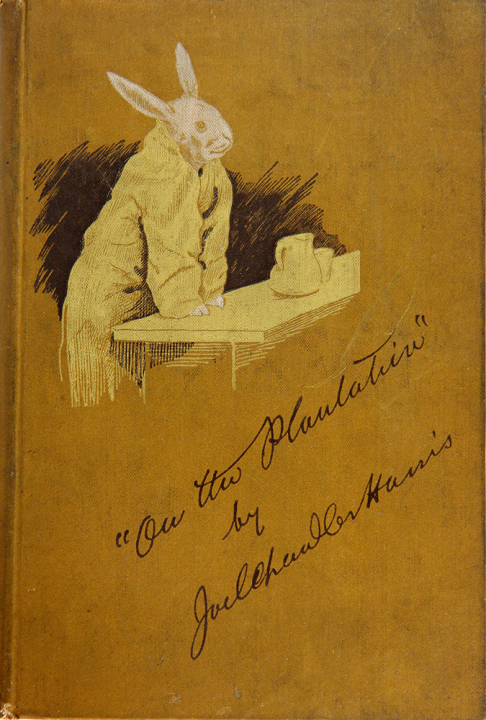 "On the Plantation"
by
Joel Chandler Harris